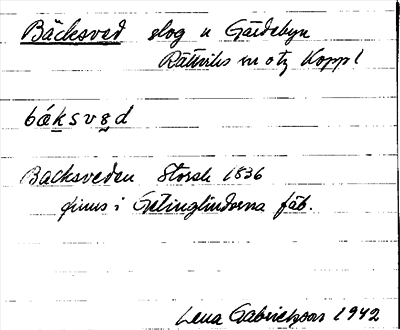 Bäcksved slog u Gärdebyn
Rättviks sn o tg Koppl
báksved
Backsveden Storsk 1836
finns i Getinglindorna fäb.
Lena Gabrielsson 1942